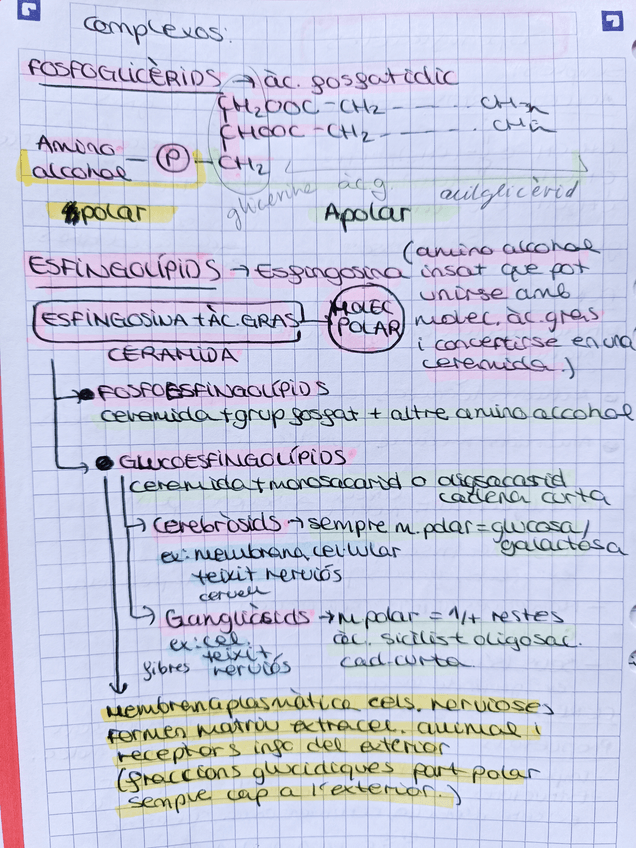 Complexos:
FOSFOGLICÈRIDS → àc. fosfatídic
CH2OOC-CH2 - - - - - CH3
CHOOC-CH2 - - - - - CH3
Amino alcohol - P - CH2
glicerina àc g. acilglicèrid
polar Apolar
ESFINGOLÍPIDS → Esfingosina (amino alcohol
insat que pot
unirse amb
molec. àc. gras
i concertirse en una
ceremida.)
ESFINGOSINA + ÀC. GRAS MOLEC POLAR
CERAMIDA
• FOSFOESFINGOLÍPIDS
ceremida + grup fosfat + altre amino alcohol
• GLUCOESFINGOLÍPIDS
ceremida + monosacarid o oligsacarid
cadena curta
→ Cerebròsids → sempre m. polar = glucosa /
galactosa
ex: membrana cel·lular
teixit nerviós
cervell
→ Gangliòsids → m. polar = 1/+ restes
àc. sicílist oligosac.
cad. curta
ex: cel.
fibres teixit
nerviós
Membrana plasmàtica cels. nervioses,
formen matriu extracel. animal i
receptors info del exterior
(fraccions glucidiques part polar
sempre cap a l'exterior.)